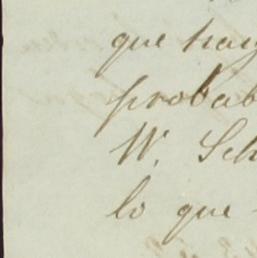 que hay
probab
W. Sch
lo que